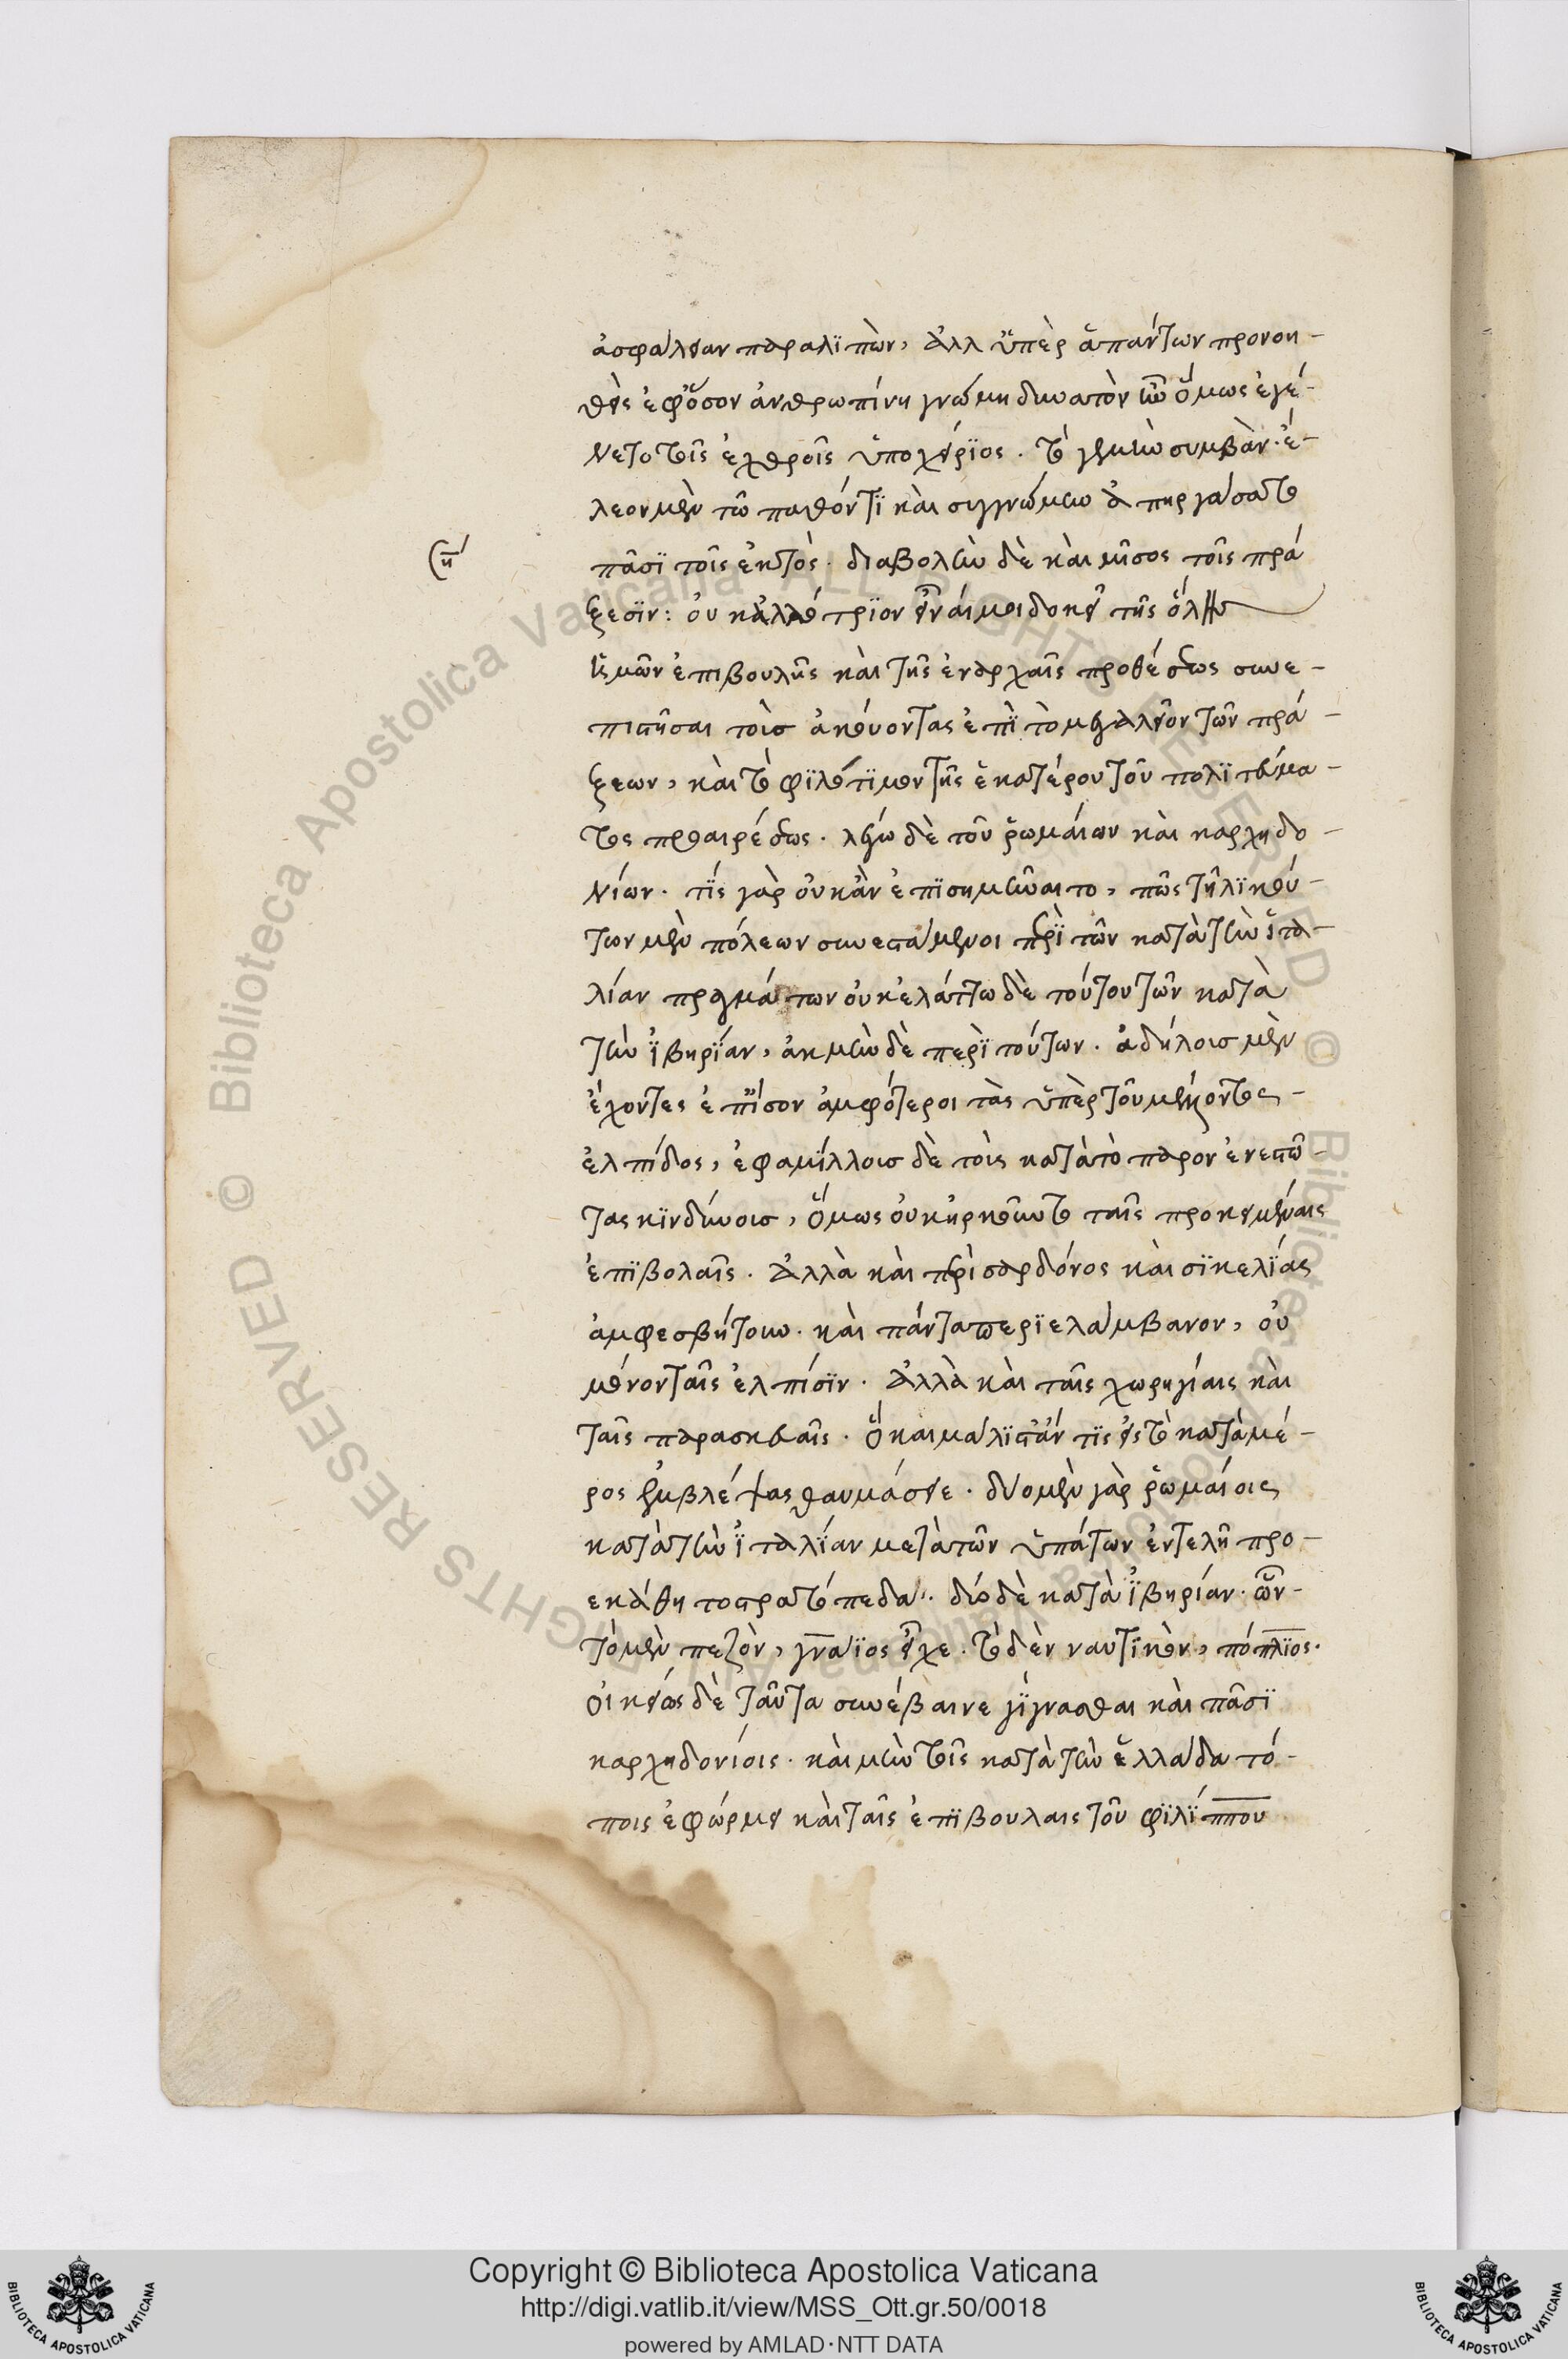 ἀσφάλειαν παραλϊπὼν, ἀλλ ὑπὲρ ἁπάντων προνοη-
θεὶς ἐφ ὅσον ἀνθρωπίνη γνώμη δυνατὸν ἦν ὅμως ἐγέ-
νετο τοῖς ἐχθροῖς ὑποχείρϊος. τὸ γεμὴν συμβὰν. ἐ-
λεον μὲν τῶ παθόντϊ καὶ συγγνώμην ἀπηργάσατο
πᾶσϊ τοῖς ἐκτὸς. διαβολὴν δὲ καὶ μῖσος τοῖς πρά
ξεσϊν: οὐκ ἀλλότρϊον εἶναί μοι δοκεῖ τῆς ὅλης
ἡμῶν ἐπιβουλῆς καὶ τῆς ἐν ἀρχαῖς προθέσεως συνε-
πιστῆσαι τοὺσ ἀκούοντας ἐπῒ τὸ μεγαλεῖον τῶν πρά-
ξεων, καὶ τὸ φϊλότϊμον τῆς ἑκατέρου τοῦ πολϊτεύμα-
τος προαιρέσεως. λέγω δὲ τοῦ ῥωμαίων καὶ καρχηδο-
νίων. τίς γὰρ οὐκ ἂν ἐπϊσημῄναιτο, πῶς τηλϊκού-
των μὲν πόλεων συνεστάμενοι περῒ τῶν κατὰ τὴν ἰτα-
λίαν πραγμάτων οὐκ ἐλάττω δὲ τούτου τῶν κατὰ
τὴν ἰβηρίαν, ἀκμὴν δὲ περῒ τούτων. ἀδήλοισ μὲν
ἔχοντες ἐπΐσον ἀμφότεροι τὰς ὑπὲρ τοῦ μέλλοντος
ἐλπίδος, ἐφαμίλλοισ δὲ τοὶς κατὰ τὸ παρον ἐνεστῶ-
τας κϊνδύνοισ, ὅμως οὐκ ἠρκοῦντο ταῖς προκειμέναις
ἐπϊβολαῖς. ἀλλὰ καὶ περὶ σαρδόνος καὶ σϊκελϊάς
ἀμφεσβήτουν. καὶ πάντα περϊελάμβανον, οὐ
μόνον ταῖς ἐλπίσϊν. ἀλλὰ καὶ ταῖς χωρηγίαις καὶ
ταῖς παρασκευαῖς. ὃ καὶ μάλϊστ ἄν τϊς εἰς τὸ κατὰ μέ-
ρος ἐμβλέψας θαυμάσειε. δύο μὲν γὰρ ῥωμαίοις
κατὰ τὴν ἰταλϊαν μετὰ τῶν ὑπάτων ἐντελῆ προ-
εκάθητο στρατόπεδα. δύο δὲ κατὰ ἰβηρίαν. ὧν-
τὸ μὲν πεζὸν, γνάϊος εἶχε. τὸ δὲν ναυτϊκὸν, πόπλϊος.
οἰκείως δὲ ταῦτα συνέβαινε γΐγνασθαι καὶ πᾶσϊ
καρχηδονίοις. καὶ μὴν τοῖς κατὰ τὴν ἑλλάδα τό-
ποις ἐφώρμει καὶ ταῖς ἐπϊβουλαις τοῦ φϊλίππου
Copyright © Biblioteca Apostolica Vaticana
http://digi.vatlib.it/view/MSS_Ott.gr.50/0018
powered by AMLAD·NTT DATA